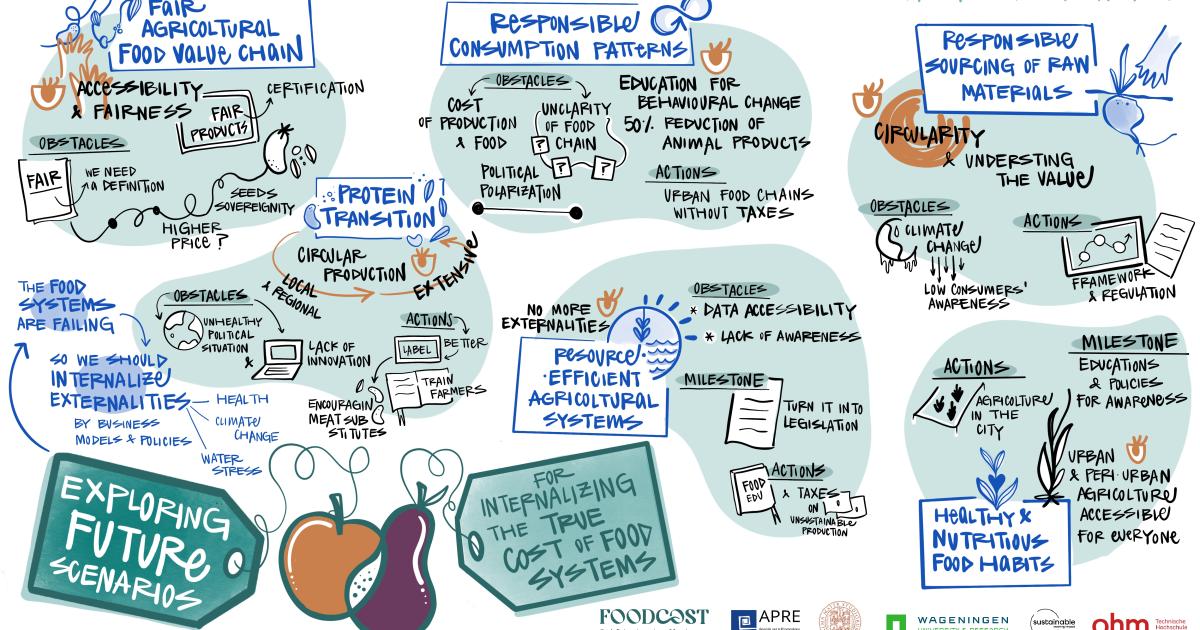 FAIR
AGRICULTURAL
FOOD VALUE CHAIN
ACCESSIBILITY
& FAIRNESS
CERTIFICATION
FAIR
PRODUCTS
OBSTACLES
FAIR
WE NEED
A DEFINITION
SEEDS
SOVEREIGNITY
HIGHER
PRICE?
RESPONSIBLE
CONSUMPTION PATTERNS
OBSTACLES
COST
OF PRODUCTION
& FOOD
UNCLARITY
OF FOOD
CHAIN
? ? ?
POLITICAL
POLARIZATION
EDUCATION FOR
BEHAVIOURAL CHANGE
50% REDUCTION OF
ANIMAL PRODUCTS
ACTIONS
URBAN FOOD CHAINS
WITHOUT TAXES
RESPONSIBLE
SOURCING OF RAW
MATERIALS
CIRCULARITY
& UNDERSTING
THE VALUE
OBSTACLES
CLIMATE
CHANGE
LOW CONSUMERS'
AWARENESS
ACTIONS
FRAMEWORK
& REGULATION
PROTEIN
TRANSITION
CIRCULAR
PRODUCTION
EXTENSIVE
LOCAL
& REGIONAL
OBSTACLES
UNHEALTHY
POLITICAL
SITUATION
&
LACK OF
INNOVATION
ACTIONS
LABEL
BETTER
TRAIN
FARMERS
ENCOURAGIN
MEAT SUB
STITUTES
THE FOOD
SYSTEMS
ARE FAILING
SO WE SHOULD
INTERNALIZE
EXTERNALITIES
BY BUSINESS
MODELS & POLICIES
HEALTH
CLIMATE
CHANGE
WATER
STRESS
NO MORE
EXTERNALITIES
RESOURCE-
·EFFICIENT
AGRICULTURAL
SYSTEMS
OBSTACLES
* DATA ACCESSIBILITY
* LACK OF AWARENESS
MILESTONE
TURN IT INTO
LEGISLATION
FOOD
EDU
ACTIONS
& TAXES
ON
UNSUSTAINABLE
PRODUCTION
ACTIONS
AGRICULTURE
IN THE
CITY
MILESTONE
EDUCATIONS
& POLICIES
FOR AWARENESS
URBAN
& PERI-URBAN
AGRICOLTURE
ACCESSIBLE
FOR EVERYONE
HEALTHY &
NUTRITIOUS
FOOD HABITS
EXPLORING
FUTURE
SCENARIOS
FOR
INTERNALIZING
THE TRUE
COST OF FOOD
SYSTEMS
FOODCOST
APRE
WAGENINGEN
sustainable
ohm
Technische
Hochschule